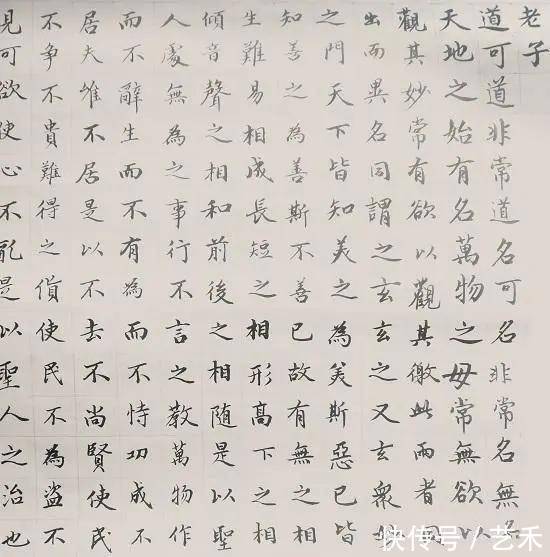 老子
道可道非常道名可名非常名無名
天地之始有名萬物之母常無欲以
觀其妙常有欲以觀其徼此兩者
出而異名同謂之玄玄之又玄衆
之門天下皆知美之為美斯惡已皆
知善之為善斯不善已故有無之相
生難易相成長短之相形高下之相
傾音聲之相和前後之相随是以聖
人處無為之事行不言之教萬物作
而不辭生而不有為而不恃功成不
居夫唯不居是以不去不尚賢使民
不争不貴難得之貨使民不為盗不
見可欲使心不亂是以聖人之治也
快传号／艺禾